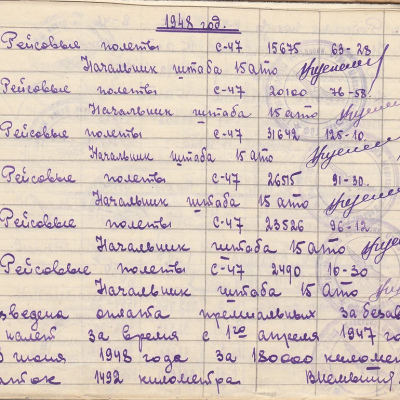 1948 год.
Рейсовые полеты С-47 15675 69-28
Начальник штаба 15 АТО
Рейсовые полеты С-47 20100 76-58
Начальник штаба 15 АТО
Рейсовые полеты С-47 31642 125-10
Начальник штаба 15 АТО
Рейсовые полеты С-47 26515 91-30.
Начальник штаба 15 АТО
Рейсовые полеты С-47 23526 96-12
Начальник штаба 15 АТО
Рейсовые полеты С-47 2490 10-30
Начальник штаба 15 АТО
зведена оплата премиальных за безава
налет за время с 1го апреля 1947 го
июня 1948 года за 180000 киломе
аток 1492 километра